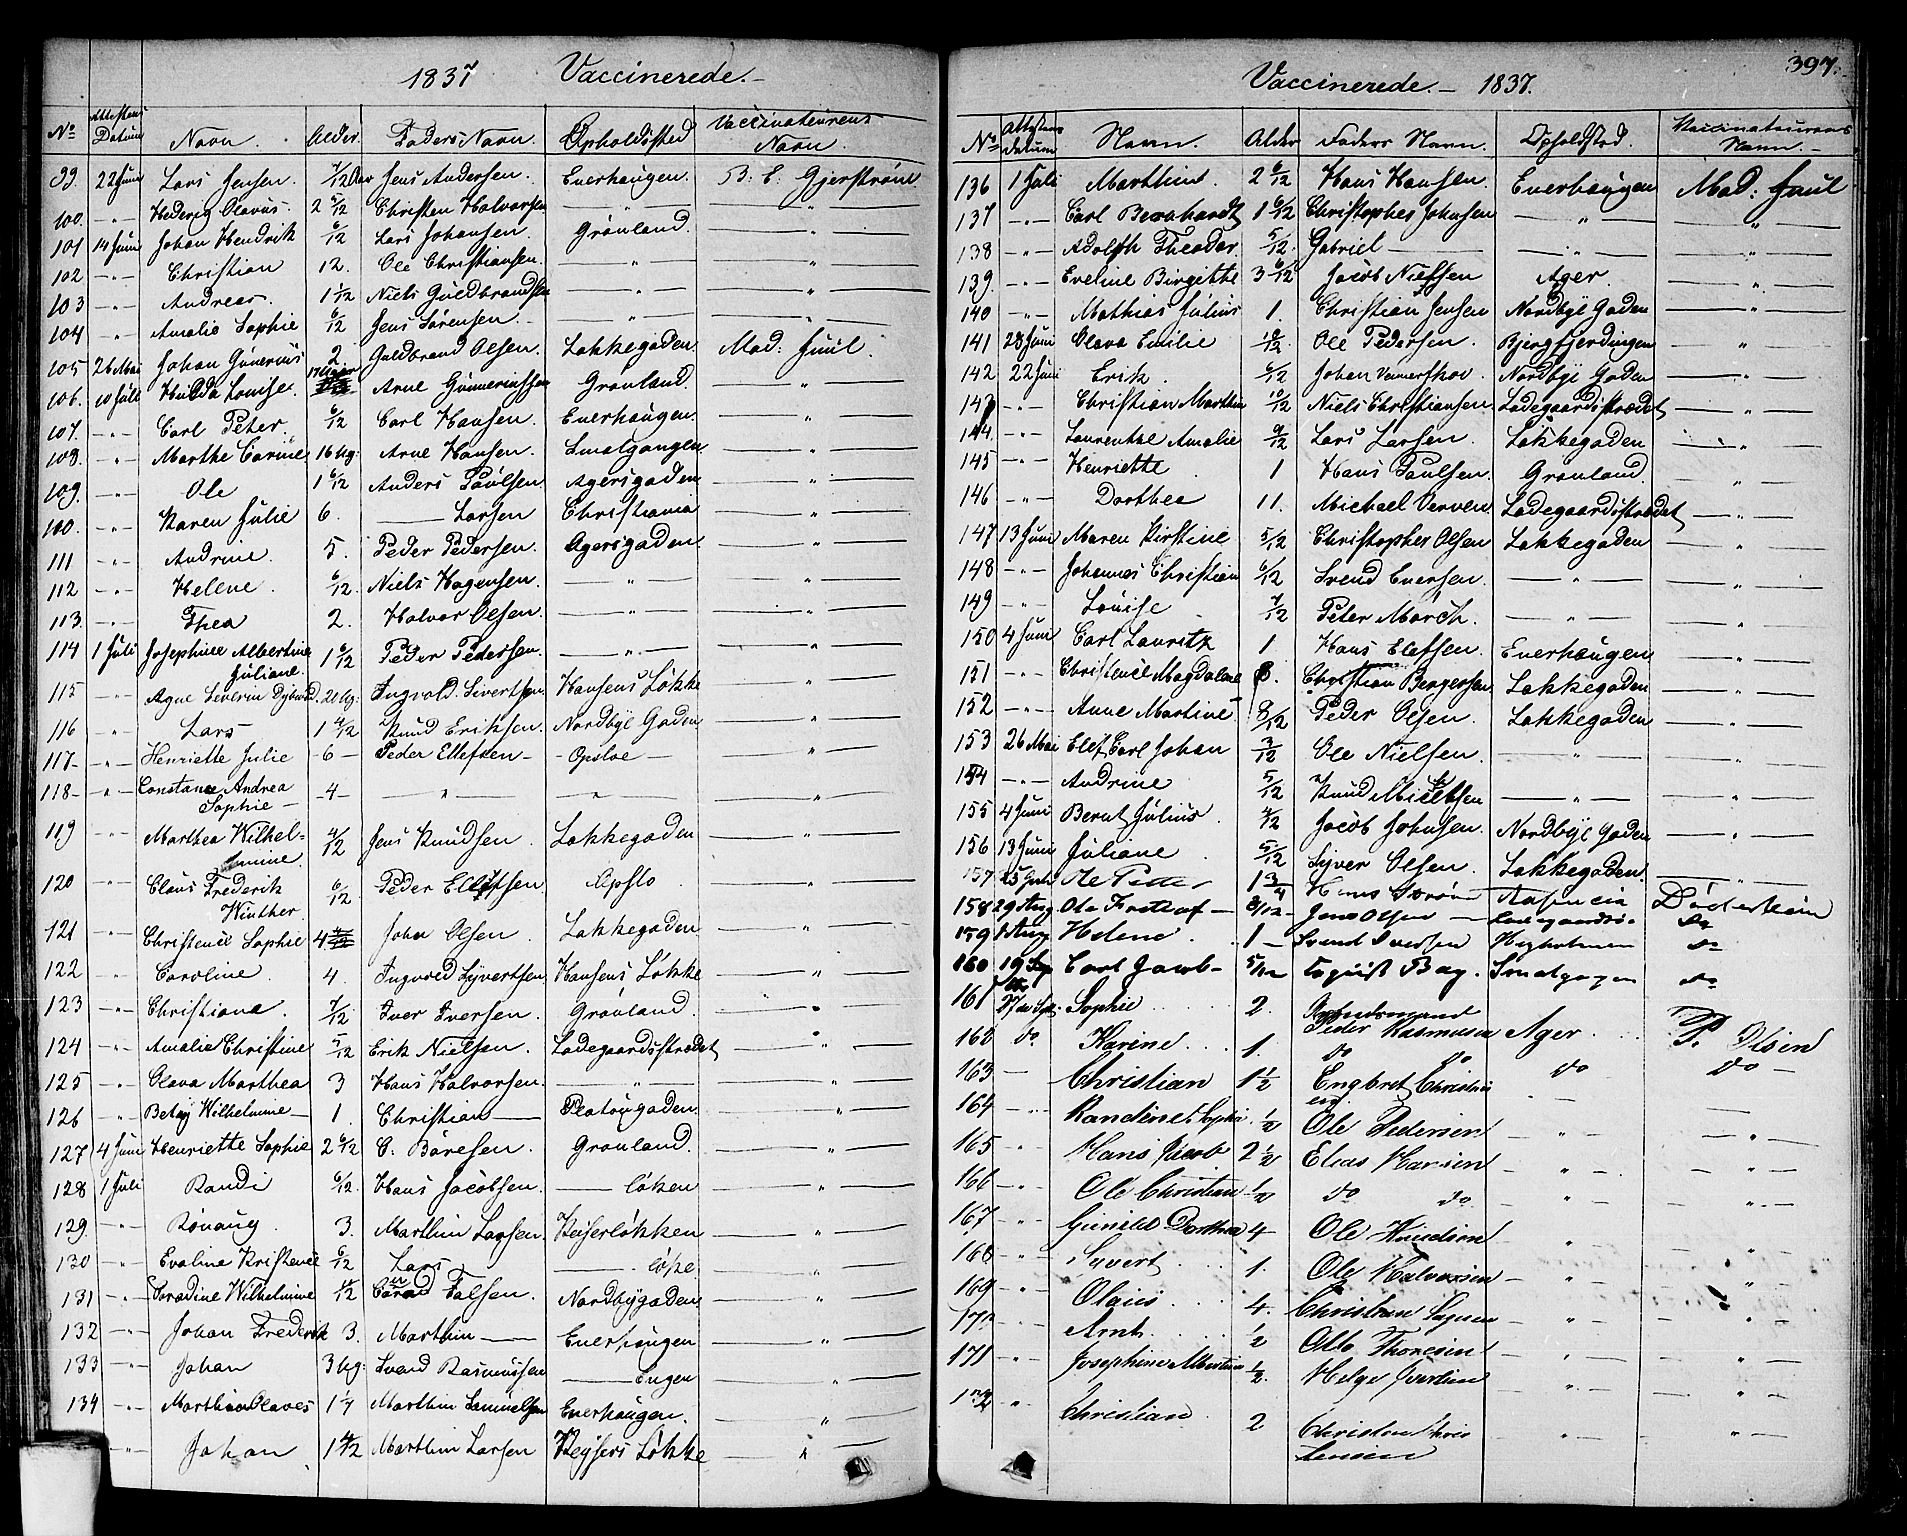 1837 Vaccinerede.-
No Attestens Datum Navn. Alder. Faders Navn. Opholdssted Vaccinateurens Navn.
99. 22 Juni Lars Jensen. 7/12 Aar Jens Andersen. Enerhaugen. B. E. Gjerstrøm
100. -"- Hedevig Olavus. 2 Christen Halvorsen — " — — " —
101 14 Juni Johan Hendrik 6/12 Lars Johansen. Grønland. — " —
102 -"- Christian 12. Ole Christiansen. — " — — " —
103 -"- Andreas. 1 1/12 Niels Guldbrandsen — " — — " —
104 -"- Amalie Sophie 6/12 Jens Sørensen. — " — — " —
105 26 Mai Johan Gunerius 2. Guldbrand Olsen. Løkkegaden. Mad: Juul.
106. 10 Juli Hulda Lovise. Arne Gunneriussen Grønland. — " —
107. -"- Carl Peter. 6/12 Carl Hansen. Enerhaugen. — " —
108. -"- Marthe Carine 16 Ug: Arne Hansen. Smalgangen — " —
109. -"- Ole 1 6/12 Anders Paulsen Agersgaden — " —
110. -"- Karen Julie 6. — Larsen Christiania — " —
111 -"- Andrine. 5. Peder Pedersen. Agersgaden — " —
112 -"- Helene. 6/12 Niels Hagensen. — " — — " —
113. -"- Thea 2. Halvor Olsen. — " — — " —
114 1 Juli Josephine Albertine Juliane. 1 6/12 Peder Pedersen. — " — — " —
115 -"- Agne Severin 20 Ug: Ingvald Sivertsen Hansens Løkke — " —
116 -"- Lars 1 4/12 Knud Eriksen. Nordbye Gaden — " —
117- -"- Henriette Julie -6- Peder Ellefsen- -Opsloe- — " —
118- -"- Constance Andrea Sophie- -4- — " — — " — — " —
119 -"- Marthea Wilhelmine. 4/12 Jens Knudsen Løkkegaden — " —
120 -"- Claus Frederik Winther. 6/12 Peder Ellefsen Opslo — " —
121 -"- Christence Sophie 4 John Olsen. Løkkegaden — " —
122 -"- Caroline. 4. Ingvold Syvertsen. Hansens Løkke — " —
123 -"- Christiane. 7/12 Iver Iversen. Grønland. — " —
124 -"- Amalie Christine 5/12 Erik Nielsen. Ladegaardsstrædet — " —
125 -"- Olava Marthea 3 Hans Halvorsen. — " — — " —
126 -"- Betsy Wilhelmine- 1. Christian — Platougaden. — " —
127 4 Juni Henriette Sophie 2 6/12 C. Børesen. Grønland. — " —
128 1 Juli Randi 6/12. Hans Jacobsen. — løken — " —
129. -"- Rønaug. 3. Marthin Larsen. Keiserløkken — " —
130 -"- Evaline Kristence 6/12 Lars — — løke — " —
131 -"- Wilhelmine Falsen. Nordbygaden — " —
132 -"- Johan Frederik 3. Marthin — Enerhaugen — " —
133 -"- Johan 3 Ug: Svend Rasmussen — Engen — " —
134 -"- Marthin Olaves Marthin Samuelsen Enerhaugen. — " —
-"- Johan Marthin Larsen Keysers Løkke — " —
397.
Vaccinerede.- 1837.
No Attestens datum Navn. Alder Faders Navn. Opholdsted. Vaccinateurens Navn.-
136 1 Juli Marthine. 2 6/12 Hans Hansen. Enerhaugen Mad: Juul
137 -"- Carl Bernhardt 1 6/12 Christopher Johnsen — " — — " —
138 -"- Adolph Theodor. 5/12. Gabriel — — " — — " —
139. -"- Eveline Birgitte 3 6/12 Jacob Nielsen Ager. — " —
140 -"- Mathias Julius 1. Christian Jensen Nordbye Gaden — " —
141 28 Juni Olava Emilie Ole Pedersen. Bjergfjerdingen — " —
142 22 Juni Erik. 6/12 Johan Nordbye Gaden — " —
143 -"- Christian Marthin 10/12 Niels Christiansen. Ladegaardsstrædet — " —
144. -"- Laurentze Amalie 9/12 Lars Larsen. Løkkegaden — " —
145 -"- Henriette 1 Hans Paulsen. Grønland. — " —
146 -"- Dorthea 11. Michael Verven Ladegaardsstrædet — " —
147 13 Juni Maren Kirstine 5/12 Christopher Olsen Løkkegaden — " —
148 -"- Johannes Christian 6/12 Svend Evensen. — " — — " —
149 -"- Louise 7/12 Peter Mørch. — " — — " —
150 4 Juni Carl Lauritz 1. Hans Elefsen. Enerhaugen — " —
151 -"- Christence Magdalene Christian Bergersen Løkkegaden — " —
152 -"- Anne Martine 8/12 Peder Olsen. Løkkegaden — " —
153 26 Mai Elef Carl Johan 3/12 Ole Nielsen — " — — " —
154 -"- Andrine 5/12 Knud — " — — " —
155 4 Juni Bernt Julius. Jacob Johnsen. Nordbye Gaden — " —
156 13 Juni Juliane. 5/12 Syver Olsen Løkkegaden. — " —
157 Ole Peter 1 3/4 Hans Strøm
158 29 Aug Ole 8/12- Jens Olsen — Do
159 Aug Helene. 1 — Svend Do
160 19 Sep Carl Jacob- 5/12 Smalgagen do
161 Sophie 2. Peder Rasmussen Ager P. Olsen
162 do Karine 1. do do do do -
163 - Christian 1 1/2 Engbret — " — —
164 -"- 1/2 Ole Pedersen — " — — " —
165 -"- Hans Jacob 2 1/2 Elias Hansen — " — — " —
166 -"- Ole Christian 1/2 do do — " — — " —
167 -"- Gunild Dorthea 4 Ole Knudsen — " — — " —
168 -"- Syvert 1. Ole Halvorsen — " — — " —
169 -"- Olaus 4. Christian — " — — " —
170 -"- Arnt. 1/2 Otto Thoresen — " — — " —
171 -"- Josephine Albertine 1/2. Helge Iversen — " — — " —
172 -"- Christian 2 Christen — " — — " —